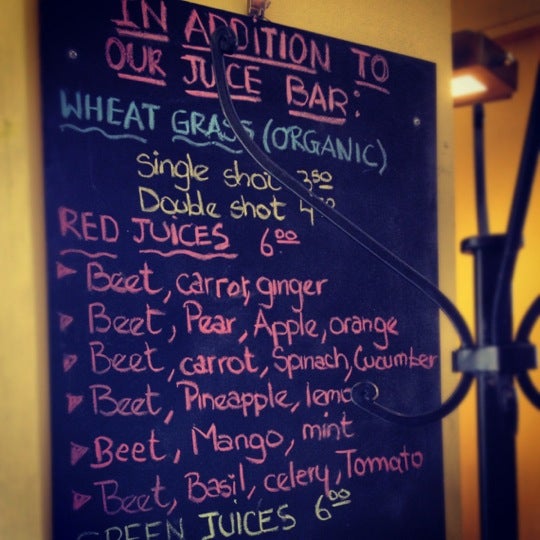 IN ADDITION TO
OUR JUICE BAR:
WHEAT GRASS (ORGANIC)
Single shot 3.50
Double shot
RED JUICES 6.00
Beet, carrot, ginger
Beet, Pear, Apple, orange
Beet, carrot, Spinach, Cucumber
Beet, Pineapple, lemon
Beet, Mango, mint
Beet, Basil, celery, Tomato
GREEN JUICES 6.00